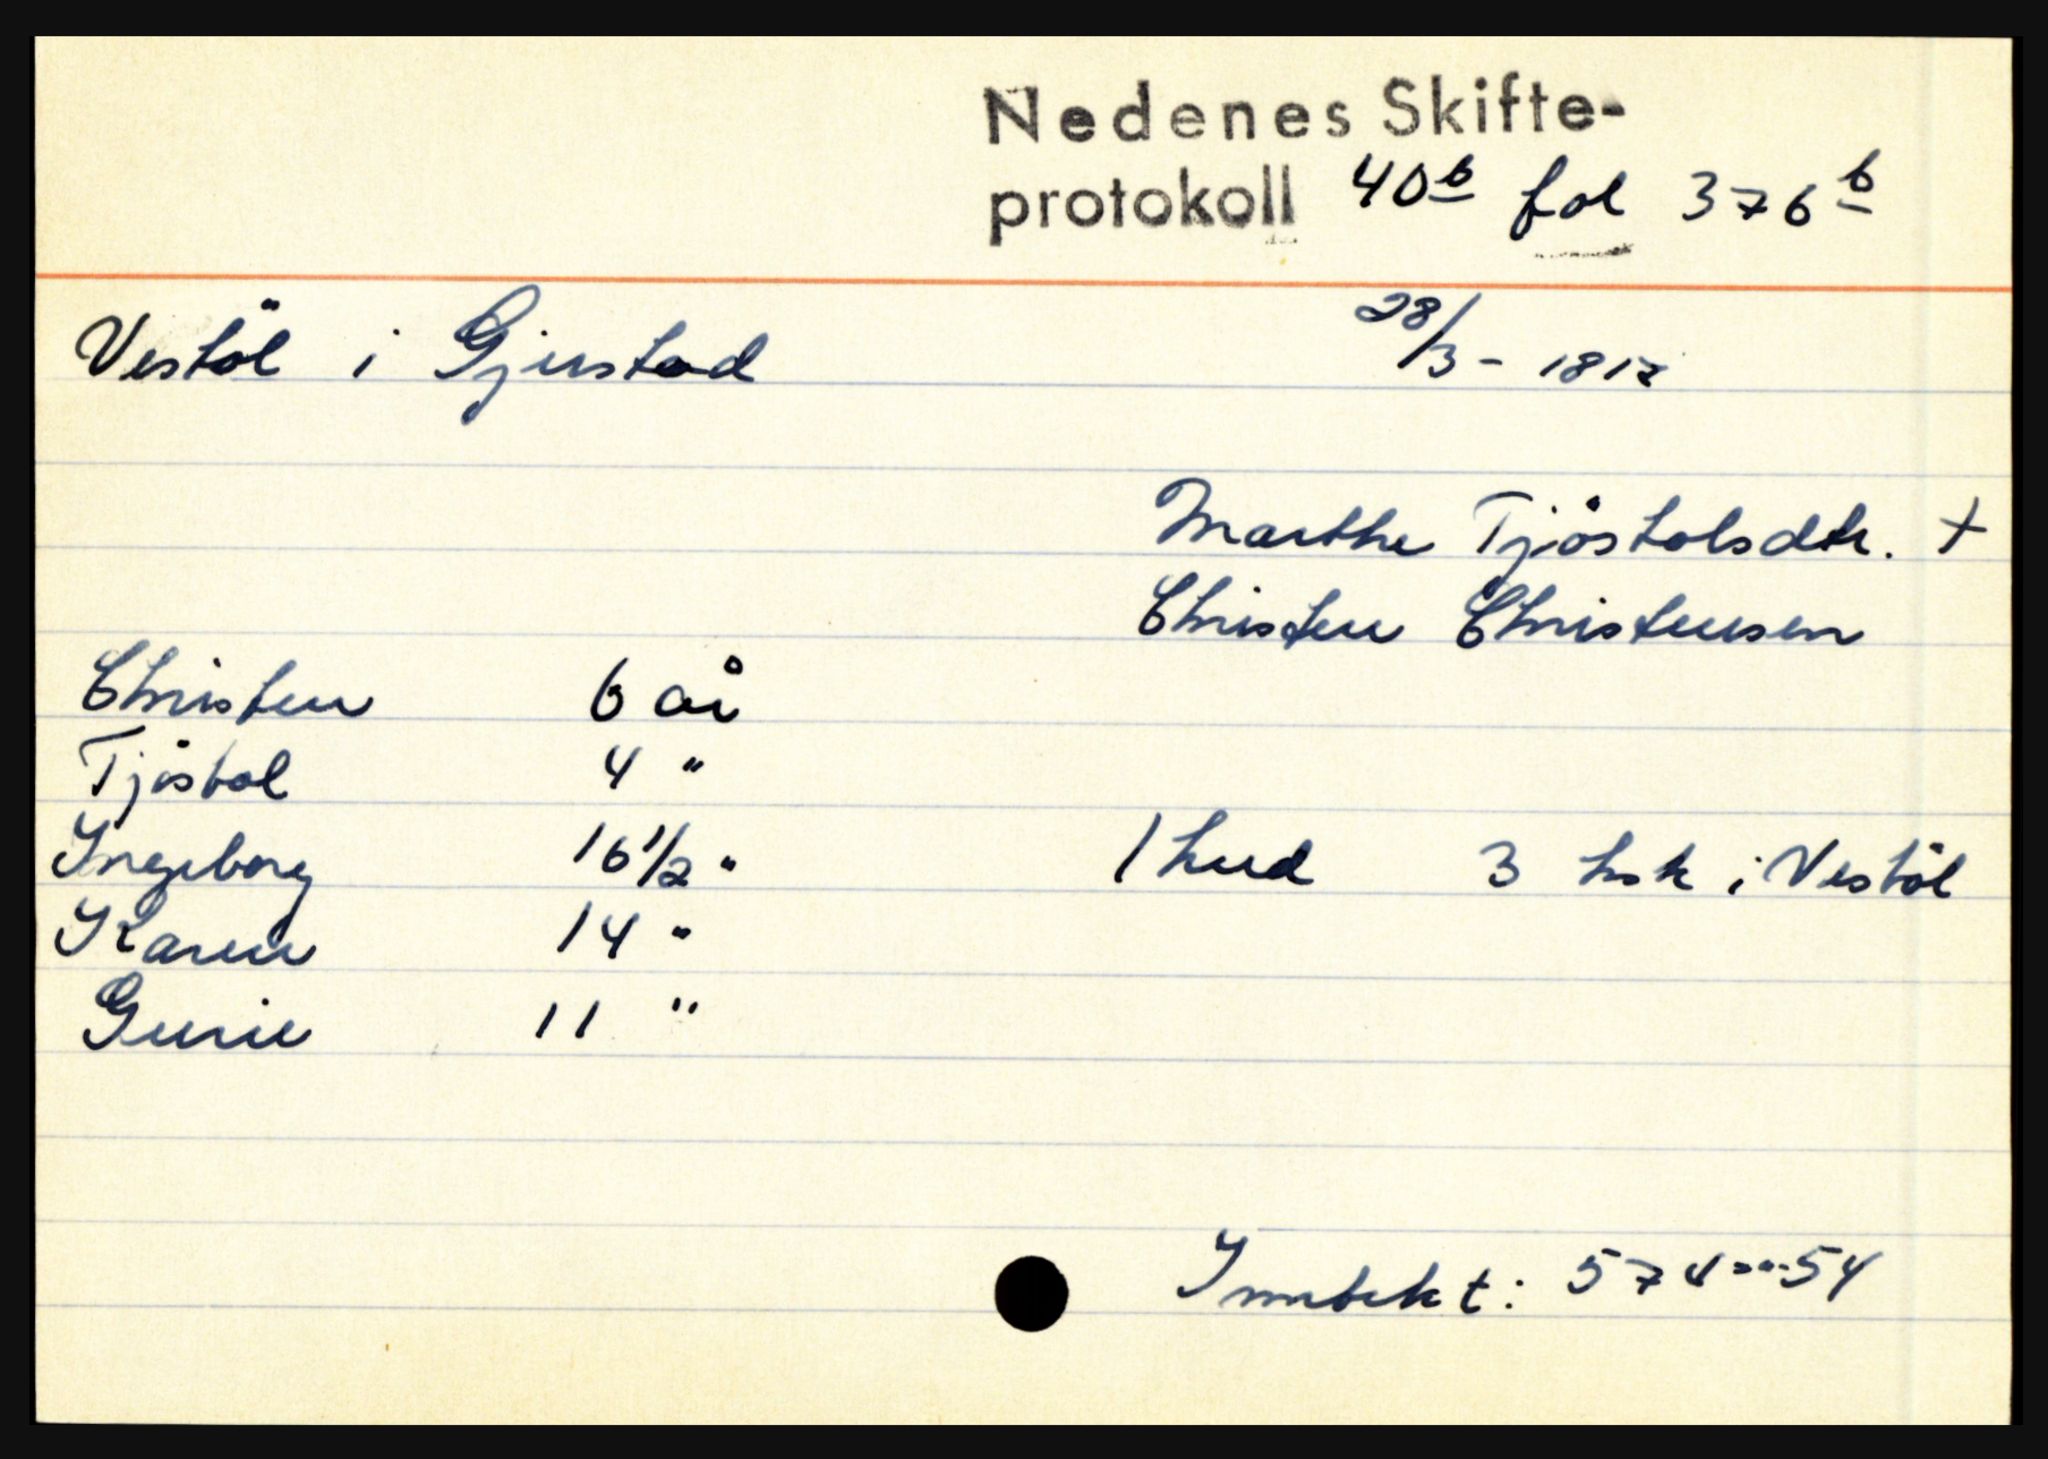 Nedenes Skifte-
protokoll 40b fol 376b
Vestöl i Gjerstad 28/3 - 1812
Marthe Tjöstolsdtr. +
Christen Christensen
Christen 6 år
Tjöstol 4 "
Ingeborg 16 1/2 " 1 hud 3 hsk i Vestöl
Karen 14 "
Gurie 11 "
Inntekt: 574 - 54